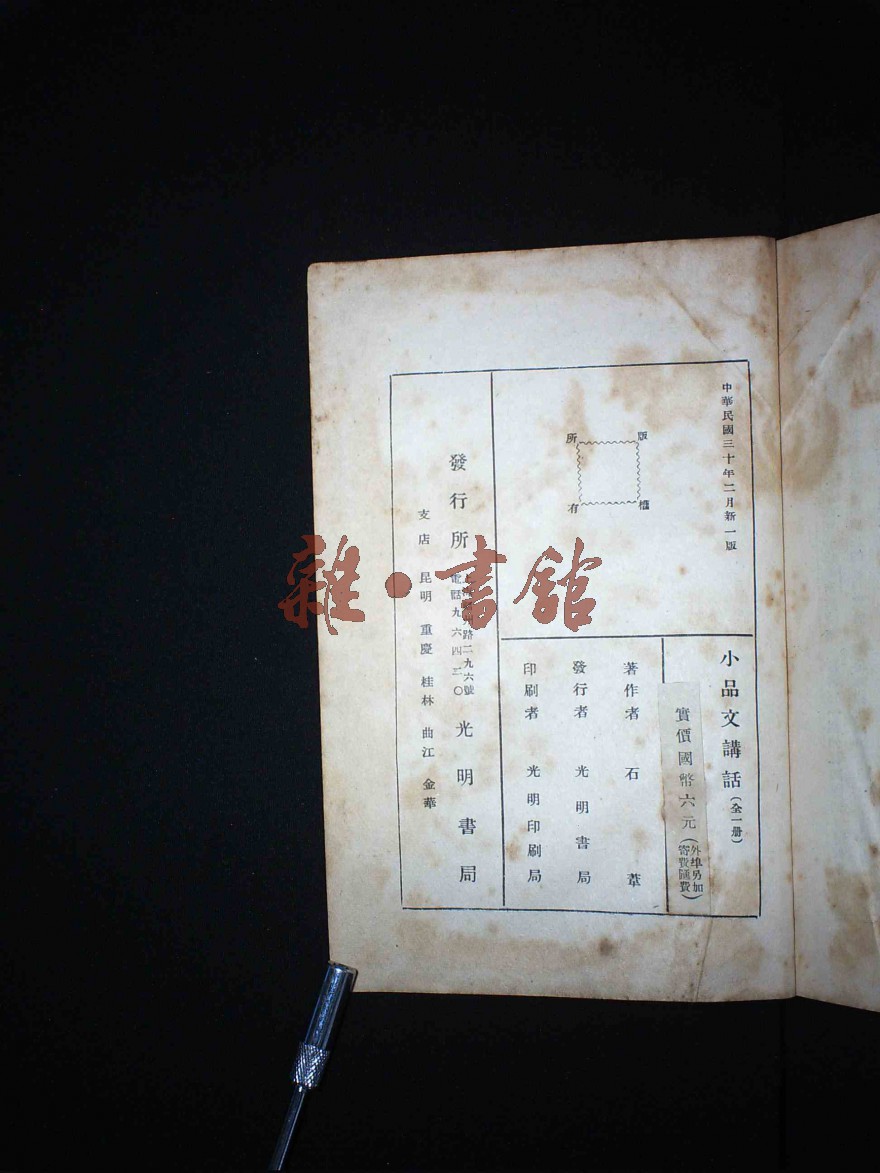 中華民國三十年二月新一版
版權所有
小品文講話(全一册)
實價國幣六元(外埠另加寄費匯費)
著作者 石葦
發行者 光明書局
印刷者 光明印刷局
發行所 光明書局
路二九六號
電話九六四三〇
支店 昆明 重慶 桂林 曲江 金華
雜·書館